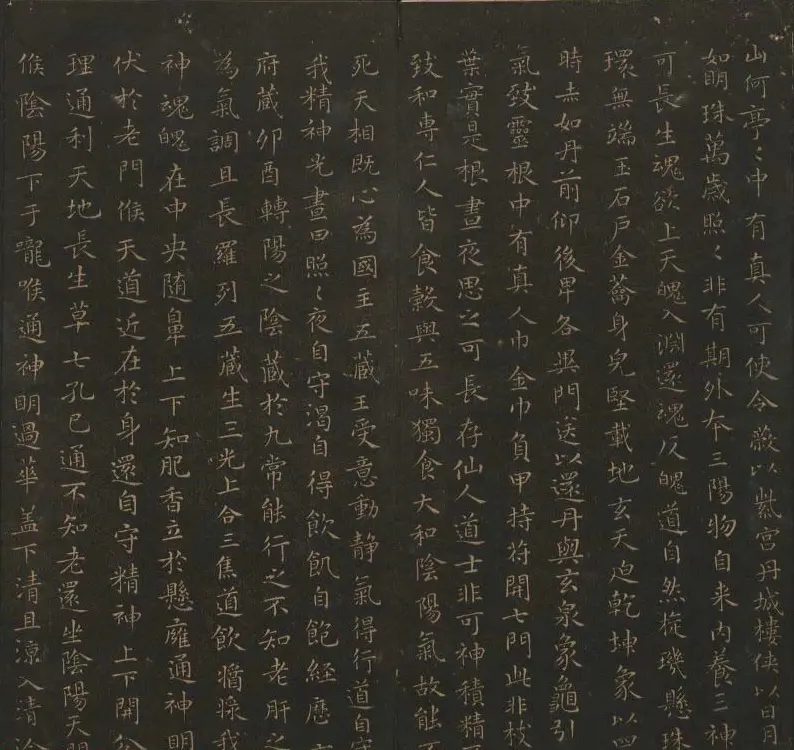 山何亭〻中有真人可使令蔽以紫宮丹城樓俠以日月
如明珠萬歲照〻非有期外本三陽物自来内養三神
可長生魂欲上天魄入淵還魂反魄道自然旋璣懸珠
環無端玉石戶金籥身皃堅載地玄天迫乾坤象以四
時赤如丹前仰後卑各異門送以還丹與玄泉象龜引
氣致靈根中有真人巾金巾負甲持符開七門此非枝
葉實是根晝夜思之可長存仙人道士非可神積精
致和專仁人皆食穀與五味獨食大和陰陽氣故能不
死天相既心為國主五藏王受意動静氣得行道自守
我精神光晝日照〻夜自守渴自得飲飢自飽經歷
府藏卯酉轉陽之陰藏於九常能行之不知老肝之
為氣調且長羅列五藏生三光上合三焦道飲醬錄我
神魂魄在中央随鼻上下知肥香立於懸雍通神明
伏於老門候天道近在於身還自守精神上下開分
理通利天地長生草七孔已通不知老還坐陰陽天門
候陰陽下于嚨喉通神明過華盖下清且凉入清泠